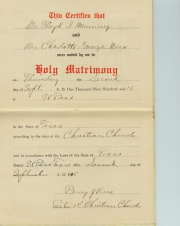 This Certifies that
Mr. Floyd S. Manning
and
Mrs Charlotte George Rees
were united by me in
Holy Matrimony
on Thursday the Second
of Sept. A. D. One Thousand Nine Hundred and 15
at El Paso
in the State of Texas
according to the rites of the Christian Church
and in accordance with the Laws of the State of Texas
Dated El Paso this Second Day of
September A. D. 1915
Perry J Rice
Pastor 1st Christian Church